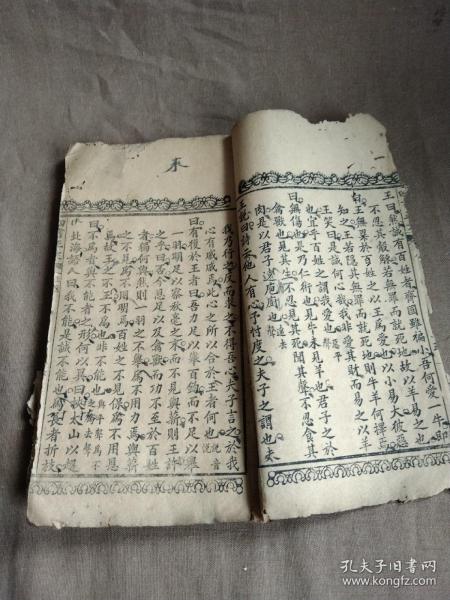 王曰然誠有百姓者齊國雖褊小吾何愛一牛即
不忍其觳觫若無罪而就死地故以羊易之也
曰王無異於百姓之以王為愛也以小易大彼惡
知之王若隱其無罪而就死地則牛羊何擇焉
王笑曰是誠何心哉我非愛其財而易之以羊
也宜乎百姓之謂我愛也
曰無傷也是乃仁術也見牛未見羊也君子之於
禽獸也見其生不忍見其死聞其聲不忍食其
肉是以君子遠庖廚也
王說曰詩云他人有心予忖度之夫子之謂也夫
來
我乃行之反而求之不得吾心夫子言之於我
心有戚戚焉此心之所以合於王者何也
曰有復於王者曰吾力足以舉百鈞而不足以舉
一羽明足以察秋毫之末而不見輿薪則王許
之乎曰否今恩足以及禽獸而功不至於百姓
者獨何與然則一羽之不舉為不用力焉輿薪
之不見為不用明焉百姓之不見保為不用恩
焉故王之不王不為也非不能也
曰不為者與不能者之形何以異曰挾太山以超
北海語人曰我不能是誠不能也為長者折枝
孔夫子旧书网
www.kongfz.com